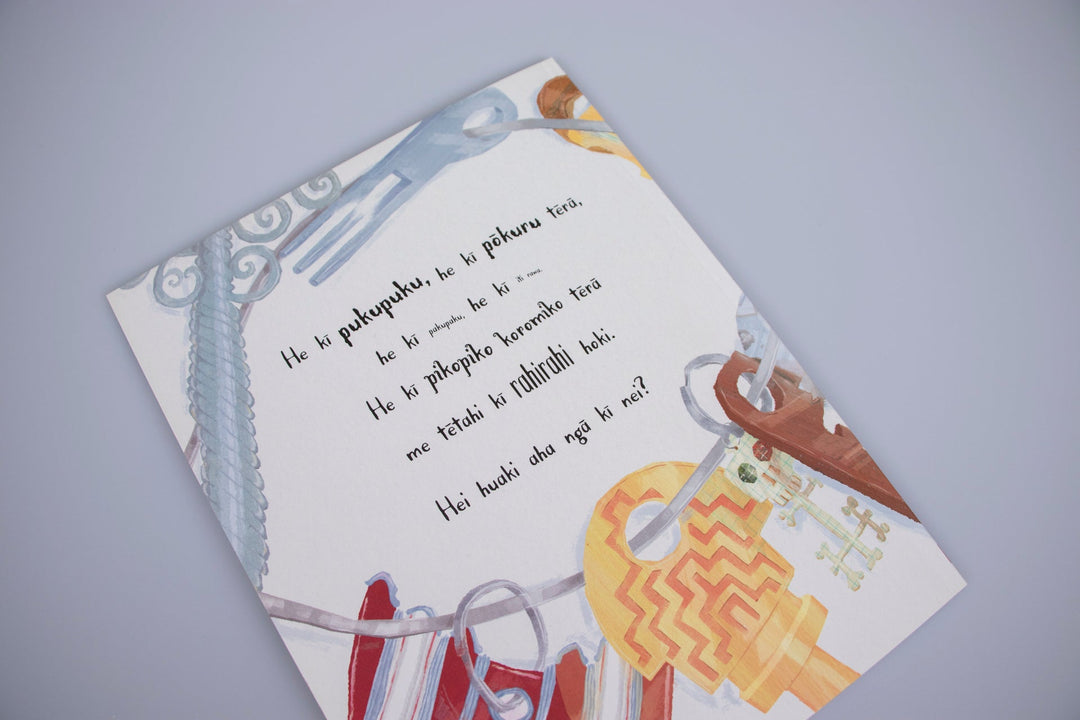 He kī pukupuku, he kī pōkuru tērā,
he kī pakupaku, he kī iti rawa.
He kī pikopiko koromiko tērā
me tētahi kī rahirahi hoki.
Hei huaki aha ngā kī nei?